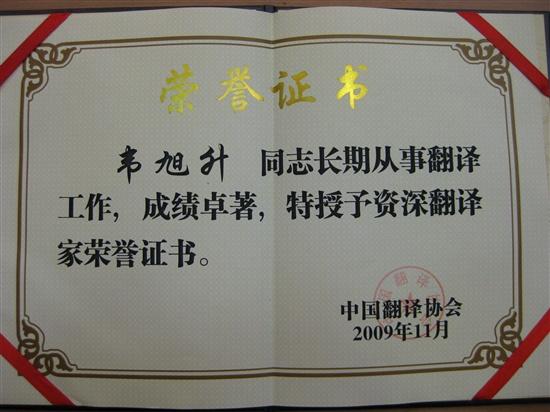 荣誉证书
韦旭升 同志长期从事翻译
工作，成绩卓著，特授予资深翻译
家荣誉证书。
中国翻译协会
2009年11月